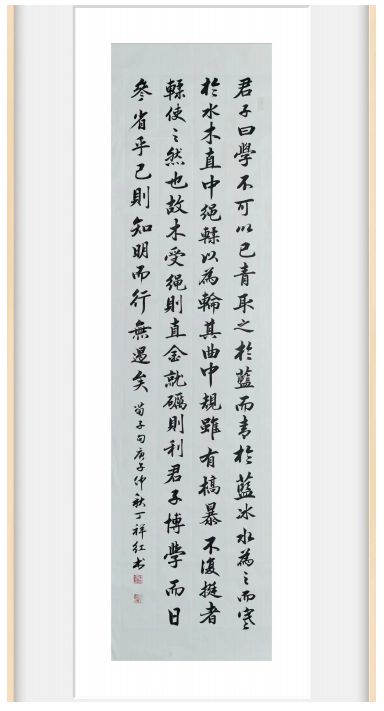 君子曰學不可以已青取之於藍而青於藍冰水為之而寒
於水木直中繩輮以為輪其曲中規雖有槁暴不復挺者
輮使之然也故木受繩則直金就礪則利君子博學而日
參省乎己則知明而行無過矣 荀子句庚子仲秋丁祥红书